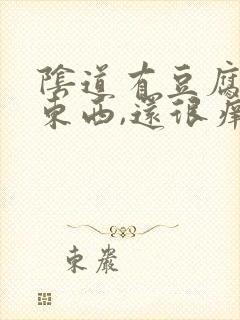 陰道有豆腐
東西,還很癢
東嚴